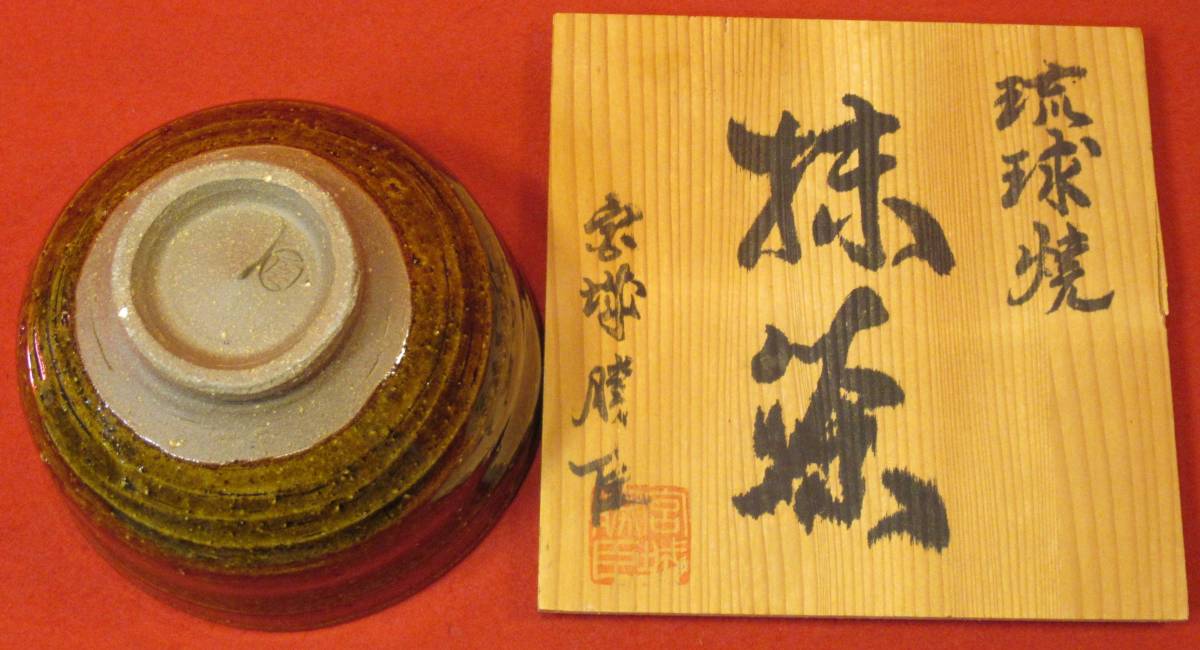 琉球焼
抹茶
宮城勝臣
宮城